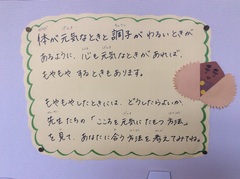 体が元気なときと調子がわるいときが
あるように、心も元気なときがあれば、
もやもやするときもあります。
もやもやしたときには、どうしたらよいか
先生たちの「こころも元気にたもつ方法」
を見て、あなたに合う方法を考えてみてね。